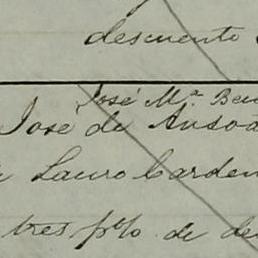 descuento
José Mª Ben
José de Ansoa
Lauro Carden
tres p%o de de